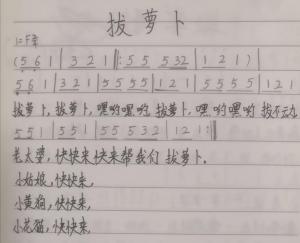 拔萝卜
1=F
(5 6 1 | 3 2 1 ‖: 5 5 5 32 | 1 2 1 )|
5 6 1 | 3 2 1 | 5 5 5 5 | 1 2 1 | 5 5 5 5 | 1 2 1
拔萝卜,拔萝卜,嘿哟嘿哟,拔萝卜,嘿哟嘿哟 拔不动
5 5 1 | 5 5 1 | 5 5 5 3 2 | 1 2 1 :‖
老太婆,快快来,快来帮我们 拔萝卜.
小姑娘,快快来,
小黄狗,快快来,
小花猫,快快来,